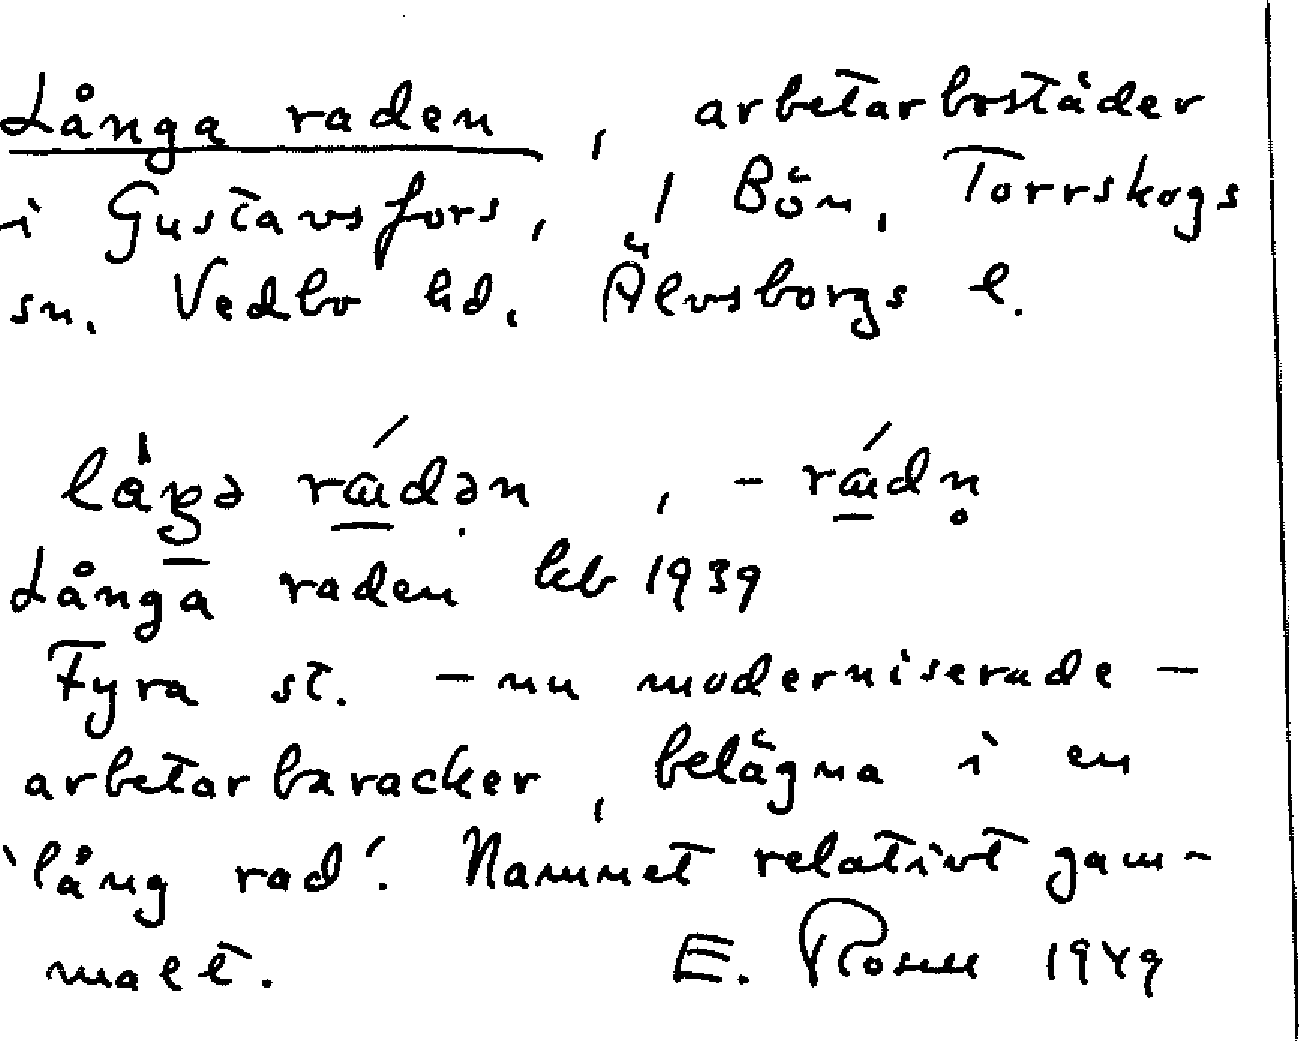 Långa raden, arbetarbostäder
i Gustavsfors, 1 Bön, Torrskogs
sn. Vedbo hd. Älvsborgs l.
låŋə rádən, - rádn̥
Långa raden kb 1939
Fyra st. - nu moderniserade -
arbetarbaracker, belägna i en
'lång rad'. Namnet relativt gam-
malt. E. 1949